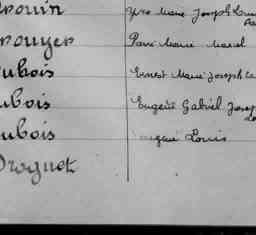 rouin Yves Marie Joseph
rouyer Pierre Marie Marcel
ubois Ernest Marie Joseph
ubois Eugène Gabriel Josep
ubois Louis
Droguet